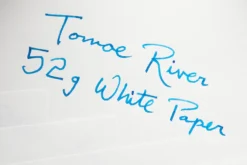 Tomoe River
52g White Paper